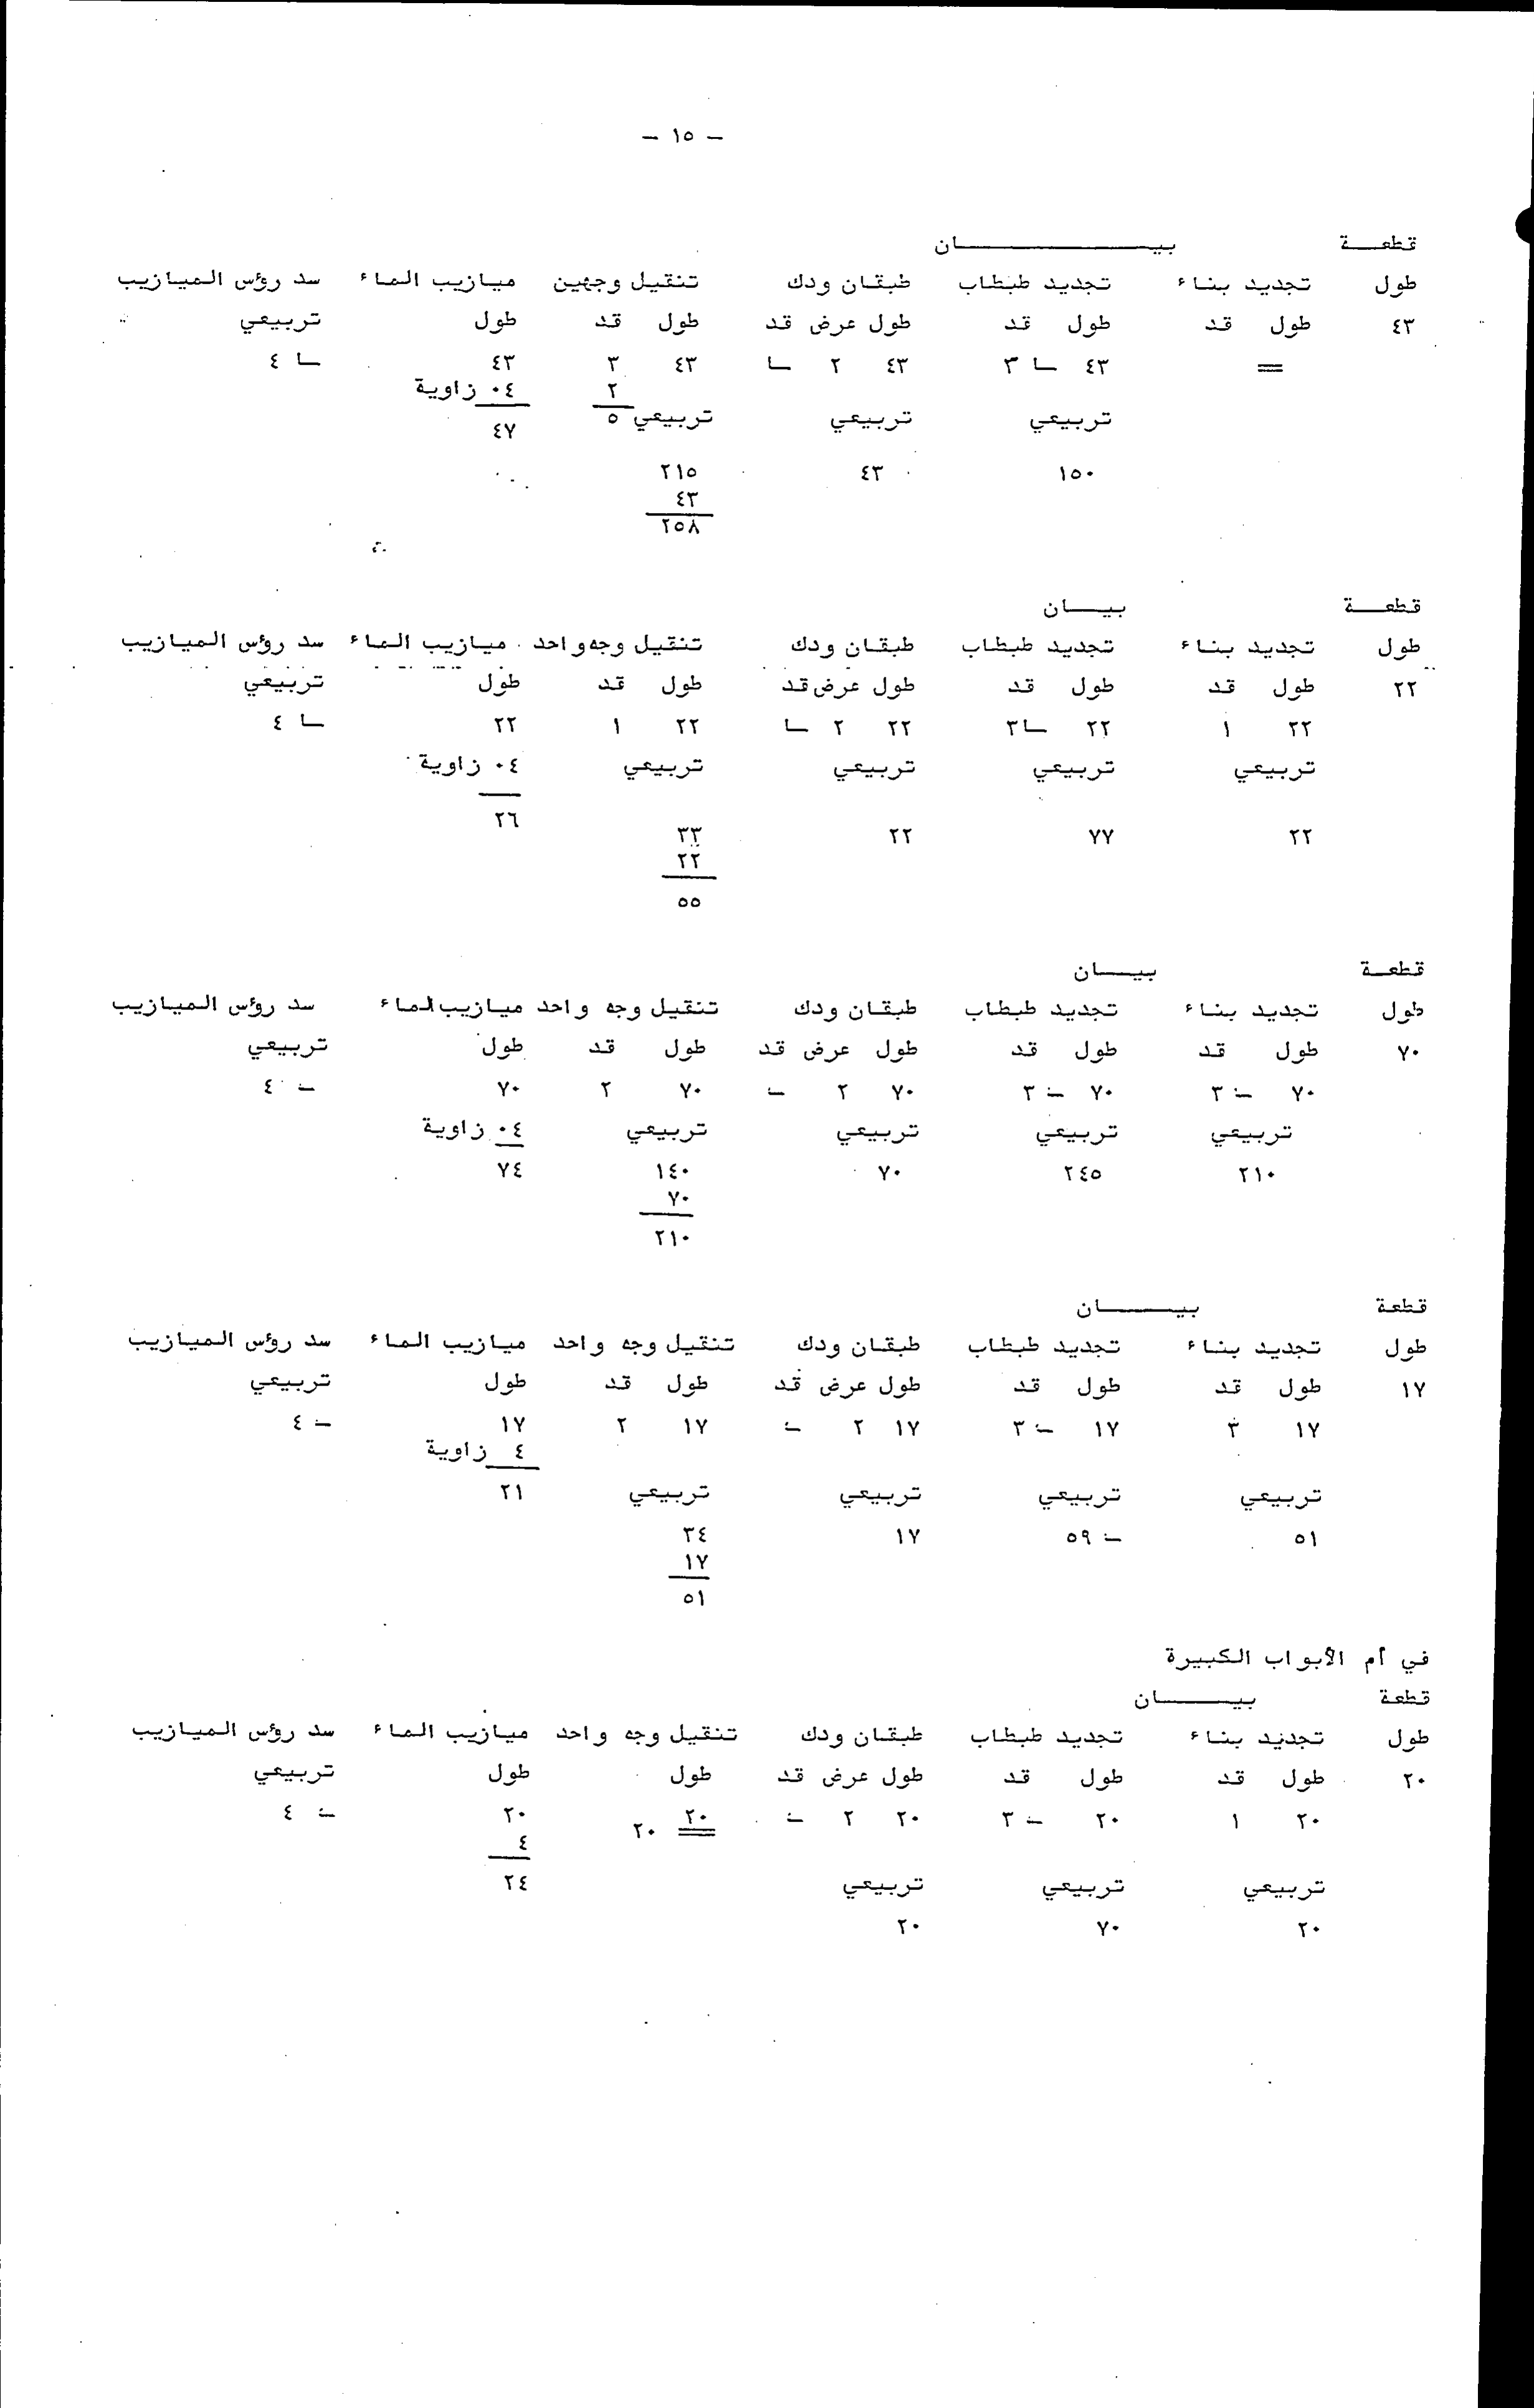 - ١٥ -
قطعـــة بيـــــــــان
طول تجديد بناء تجديد طبطاب طبقان ودك تنقيل وجهين ميازيب الماء سد رؤس الميازيب
٤٣ طول قد طول قد طول عرض قد طول قد طول تربيعي
= ٤٣ ــا ٣ ٤٣ ٢ ــا ٤٣ ٣ ٤٣ ــا ٤
٢ ٠٤ زاوية
تربيعي تربيعي تربيعي ٥ ٤٧
١٥٠ ٤٣ ٢١٥
٤٣
٢٥٨
قطعـــة بيـــان
طول تجديد بناء تجديد طبطاب طبقان ودك تنقيل وجه واحد ميازيب الماء سد رؤس الميازيب
٢٢ طول قد طول قد طول عرض قد طول قد طول تربيعي
٢٢ ١ ٢٢ ــا ٣ ٢٢ ٢ ــا ٢٢ ١ ٢٢ ــا ٤
تربيعي تربيعي تربيعي تربيعي ٠٤ زاوية
٢٦
٢٢ ٧٧ ٢٢ ٣٣
٢٢
٥٥
قطعـــة بيـــان
طول تجديد بناء تجديد طبطاب طبقان ودك تنقيل وجه واحد ميازيب الماء سد رؤس الميازيب
٧٠ طول قد طول قد طول عرض قد طول قد طول تربيعي
٧٠ ــ ٣ ٧٠ ــ ٣ ٧٠ ٢ ــ ٧٠ ٢ ٧٠ ــ ٤
تربيعي تربيعي تربيعي تربيعي ٠٤ زاوية
٢١٠ ٢٤٥ ٧٠ ١٤٠ ٧٤
٧٠
٢١٠
قطعة بيـــان
طول تجديد بناء تجديد طبطاب طبقان ودك تنقيل وجه واحد ميازيب الماء سد رؤس الميازيب
١٧ طول قد طول قد طول عرض قد طول قد طول تربيعي
١٧ ٣ ١٧ ــ ٣ ١٧ ٢ ــ ١٧ ٢ ١٧ ــ ٤
٤ زاوية
تربيعي تربيعي تربيعي تربيعي ٢١
٥١ ــ ٥٩ ١٧ ٣٤
١٧
٥١
في أم الأبواب الكبيرة
قطعة بيـــان
طول تجديد بناء تجديد طبطاب طبقان ودك تنقيل وجه واحد ميازيب الماء سد رؤس الميازيب
٢٠ طول قد طول قد طول عرض قد طول طول تربيعي
٢٠ ١ ٢٠ ــ ٣ ٢٠ ٢ ــ ٢٠ ٢٠ ٢٠ ــ ٤
٤
تربيعي تربيعي تربيعي ٢٤
٢٠ ٧٠ ٢٠